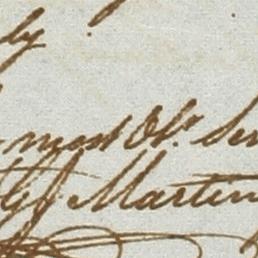 ly
most Obt. Ser
G J Martin